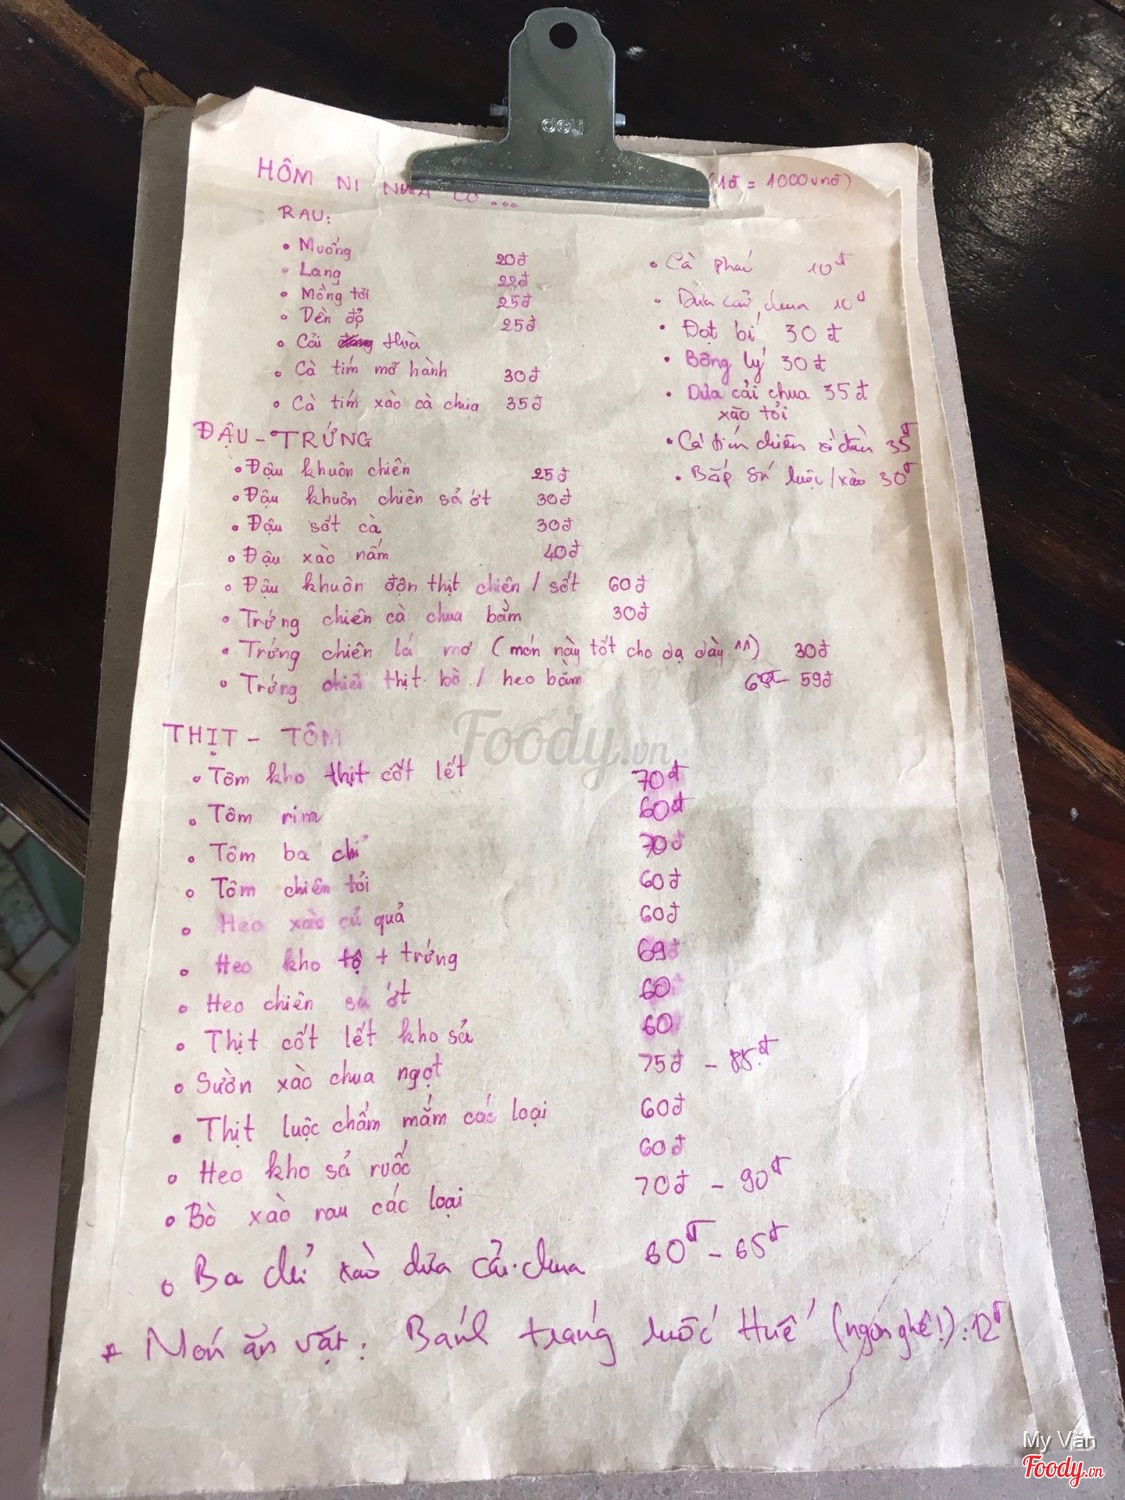 deli
HÔM NI NHÀ CÓ ... (1đ = 1000vnđ)
RAU:
• Muống 20đ
• Lang 22đ
• Mồng tơi 25đ
• Dền đỏ 25đ
• Cải thìa
• Cà tím mỡ hành 30đ
• Cà tím xào cà chua 35đ
• Cà pháo 10đ
• Dưa cải chua 10đ
• Đọt bí 30đ
• Bông lý 30đ
• Dưa cải chua 35đ
xào tỏi
• Cà tím chiên 35đ
• Bắp sú luộc/xào 30đ
ĐẬU - TRỨNG
• Đậu khuôn chiên 25đ
• Đậu khuôn chiên sả ớt 30đ
• Đậu sốt cà 30đ
• Đậu xào nấm 40đ
• Đậu khuôn độn thịt chiên / sốt 60đ
• Trứng chiên cà chua bằm 30đ
• Trứng chiên lá mơ (món này tốt cho dạ dày ^^) 30đ
• Trứng chiên thịt bò / heo bằm 59đ
THỊT - TÔM
• Tôm kho thịt cốt lết 70đ
• Tôm rim 60đ
• Tôm ba chỉ 70đ
• Tôm chiên tỏi 60đ
• Heo xào củ quả 60đ
• Heo kho tộ + trứng 69đ
• Heo chiên sả ớt 60
• Thịt cốt lết kho sả 60
• Sườn xào chua ngọt 75đ - 85đ
• Thịt luộc chấm mắm các loại 60đ
• Heo kho sả ruốc 60đ
• Bò xào rau các loại 70đ - 90đ
• Ba chỉ xào dưa cải chua 60đ - 65đ
* Món ăn vặt: Bánh tráng ruốc Huế (ngon ghê!): 12đ
Foody.vn
My Vân
Foody.vn